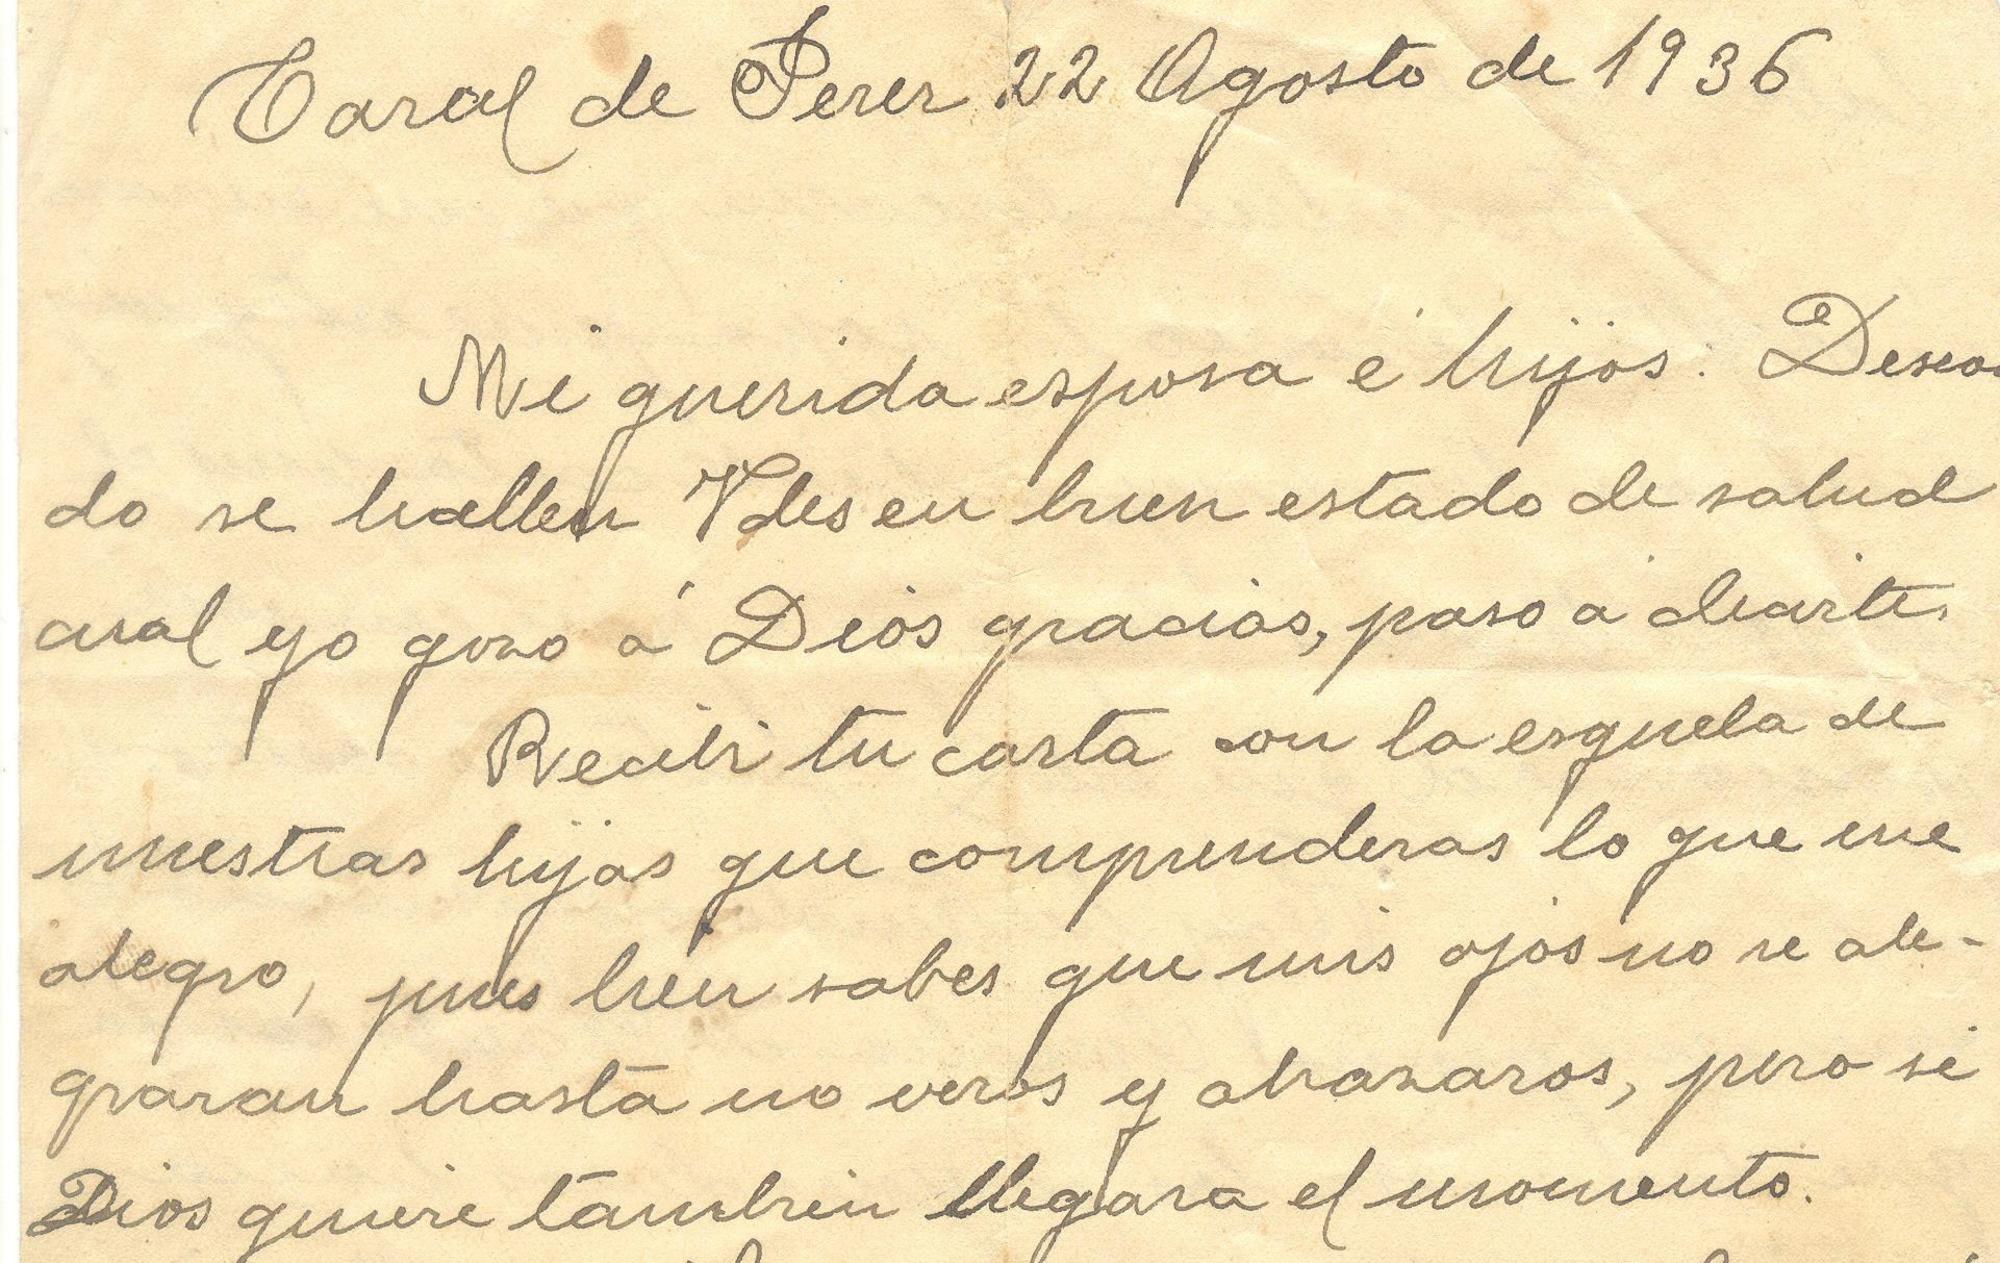 Casal de Perer 22 Agosto de 1936
Mi querida esposa é hijos: Desean
do se hallen Vdes en buen estado de salud
cual yo gozo á Dios gracias, paso a decirte.
Recibi tu carta con la esquela de
nuestras hijas que comprenderas lo que me
alegro, pues bien sabes que mis ojos no se ale-
graran hasta no veros y abrazaros, pero si
Dios quiere tambien llegara el momento.